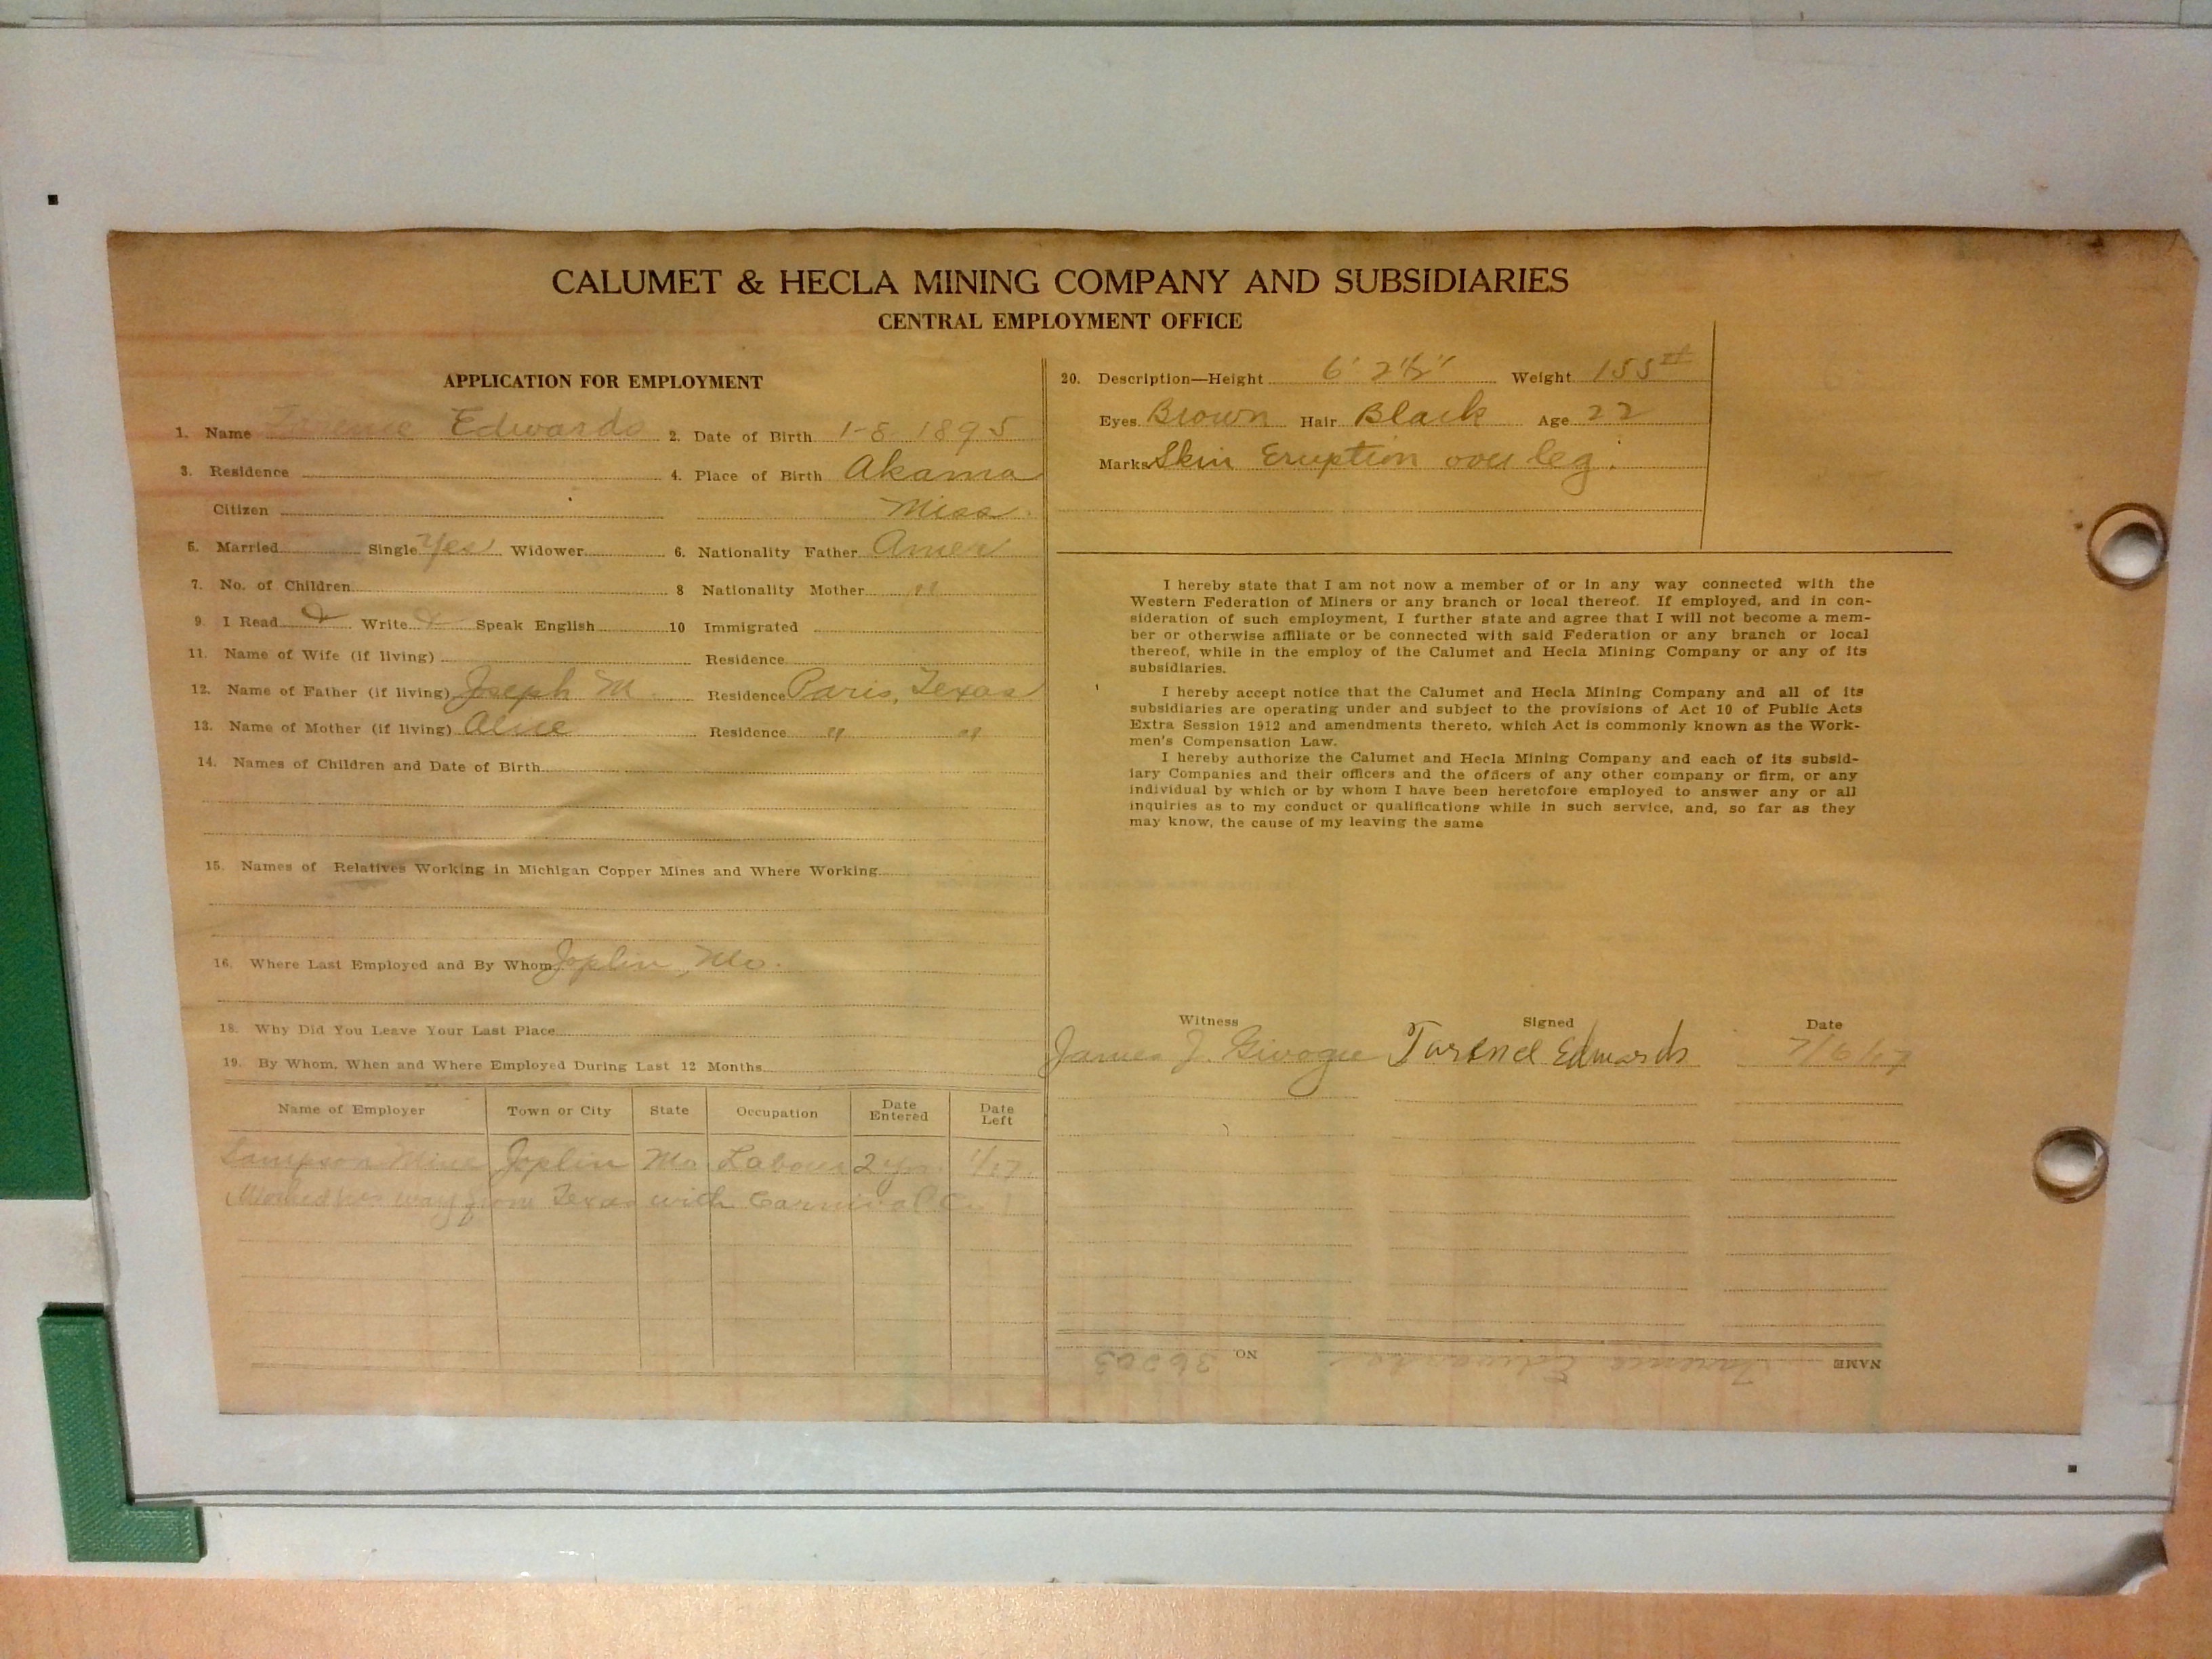 CALUMET & HECLA MINING COMPANY AND SUBSIDIARIES
CENTRAL EMPLOYMENT OFFICE
APPLICATION FOR EMPLOYMENT
1. Name Edwards 2. Date of Birth 1-8-1895
3. Residence 4. Place of Birth Akama
Citizen Miss.
5. Married Single Yes Widower 6. Nationality Father Amer
7. No. of Children 8 Nationality Mother "
9. I Read Write Speak English 10 Immigrated
11. Name of Wife (if living) Residence
12. Name of Father (if living) Joseph M. Residence Paris, Texas
13. Name of Mother (if living) Residence " "
14. Names of Children and Date of Birth
15. Names of Relatives Working in Michigan Copper Mines and Where Working
16. Where Last Employed and By Whom Joplin, Mo.
18. Why Did You Leave Your Last Place
19. By Whom, When and Where Employed During Last 12 Months
Name of Employer Town or City State Occupation Date Entered Date Left
Sampson Mine Joplin Mo Labour 2 yrs.
Worked his way from Texas with Carnival Co.
20. Description—Height 6' 2½" Weight 155#
Eyes Brown Hair Black Age 22
Marks Skin Eruption over leg.
I hereby state that I am not now a member of or in any way connected with the
Western Federation of Miners or any branch or local thereof. If employed, and in con-
sideration of such employment, I further state and agree that I will not become a mem-
ber or otherwise affiliate or be connected with said Federation or any branch or local
thereof, while in the employ of the Calumet and Hecla Mining Company or any of its
subsidiaries.
I hereby accept notice that the Calumet and Hecla Mining Company and all of its
subsidiaries are operating under and subject to the provisions of Act 10 of Public Acts
Extra Session 1912 and amendments thereto, which Act is commonly known as the Work-
men's Compensation Law.
I hereby authorize the Calumet and Hecla Mining Company and each of its subsid-
iary Companies and their officers and the officers of any other company or firm, or any
individual by which or by whom I have been heretofore employed to answer any or all
inquiries as to my conduct or qualifications while in such service, and, so far as they
may know, the cause of my leaving the same
Witness Signed Date
James J. Edwards 7/6/17
NAME Edwards NO.